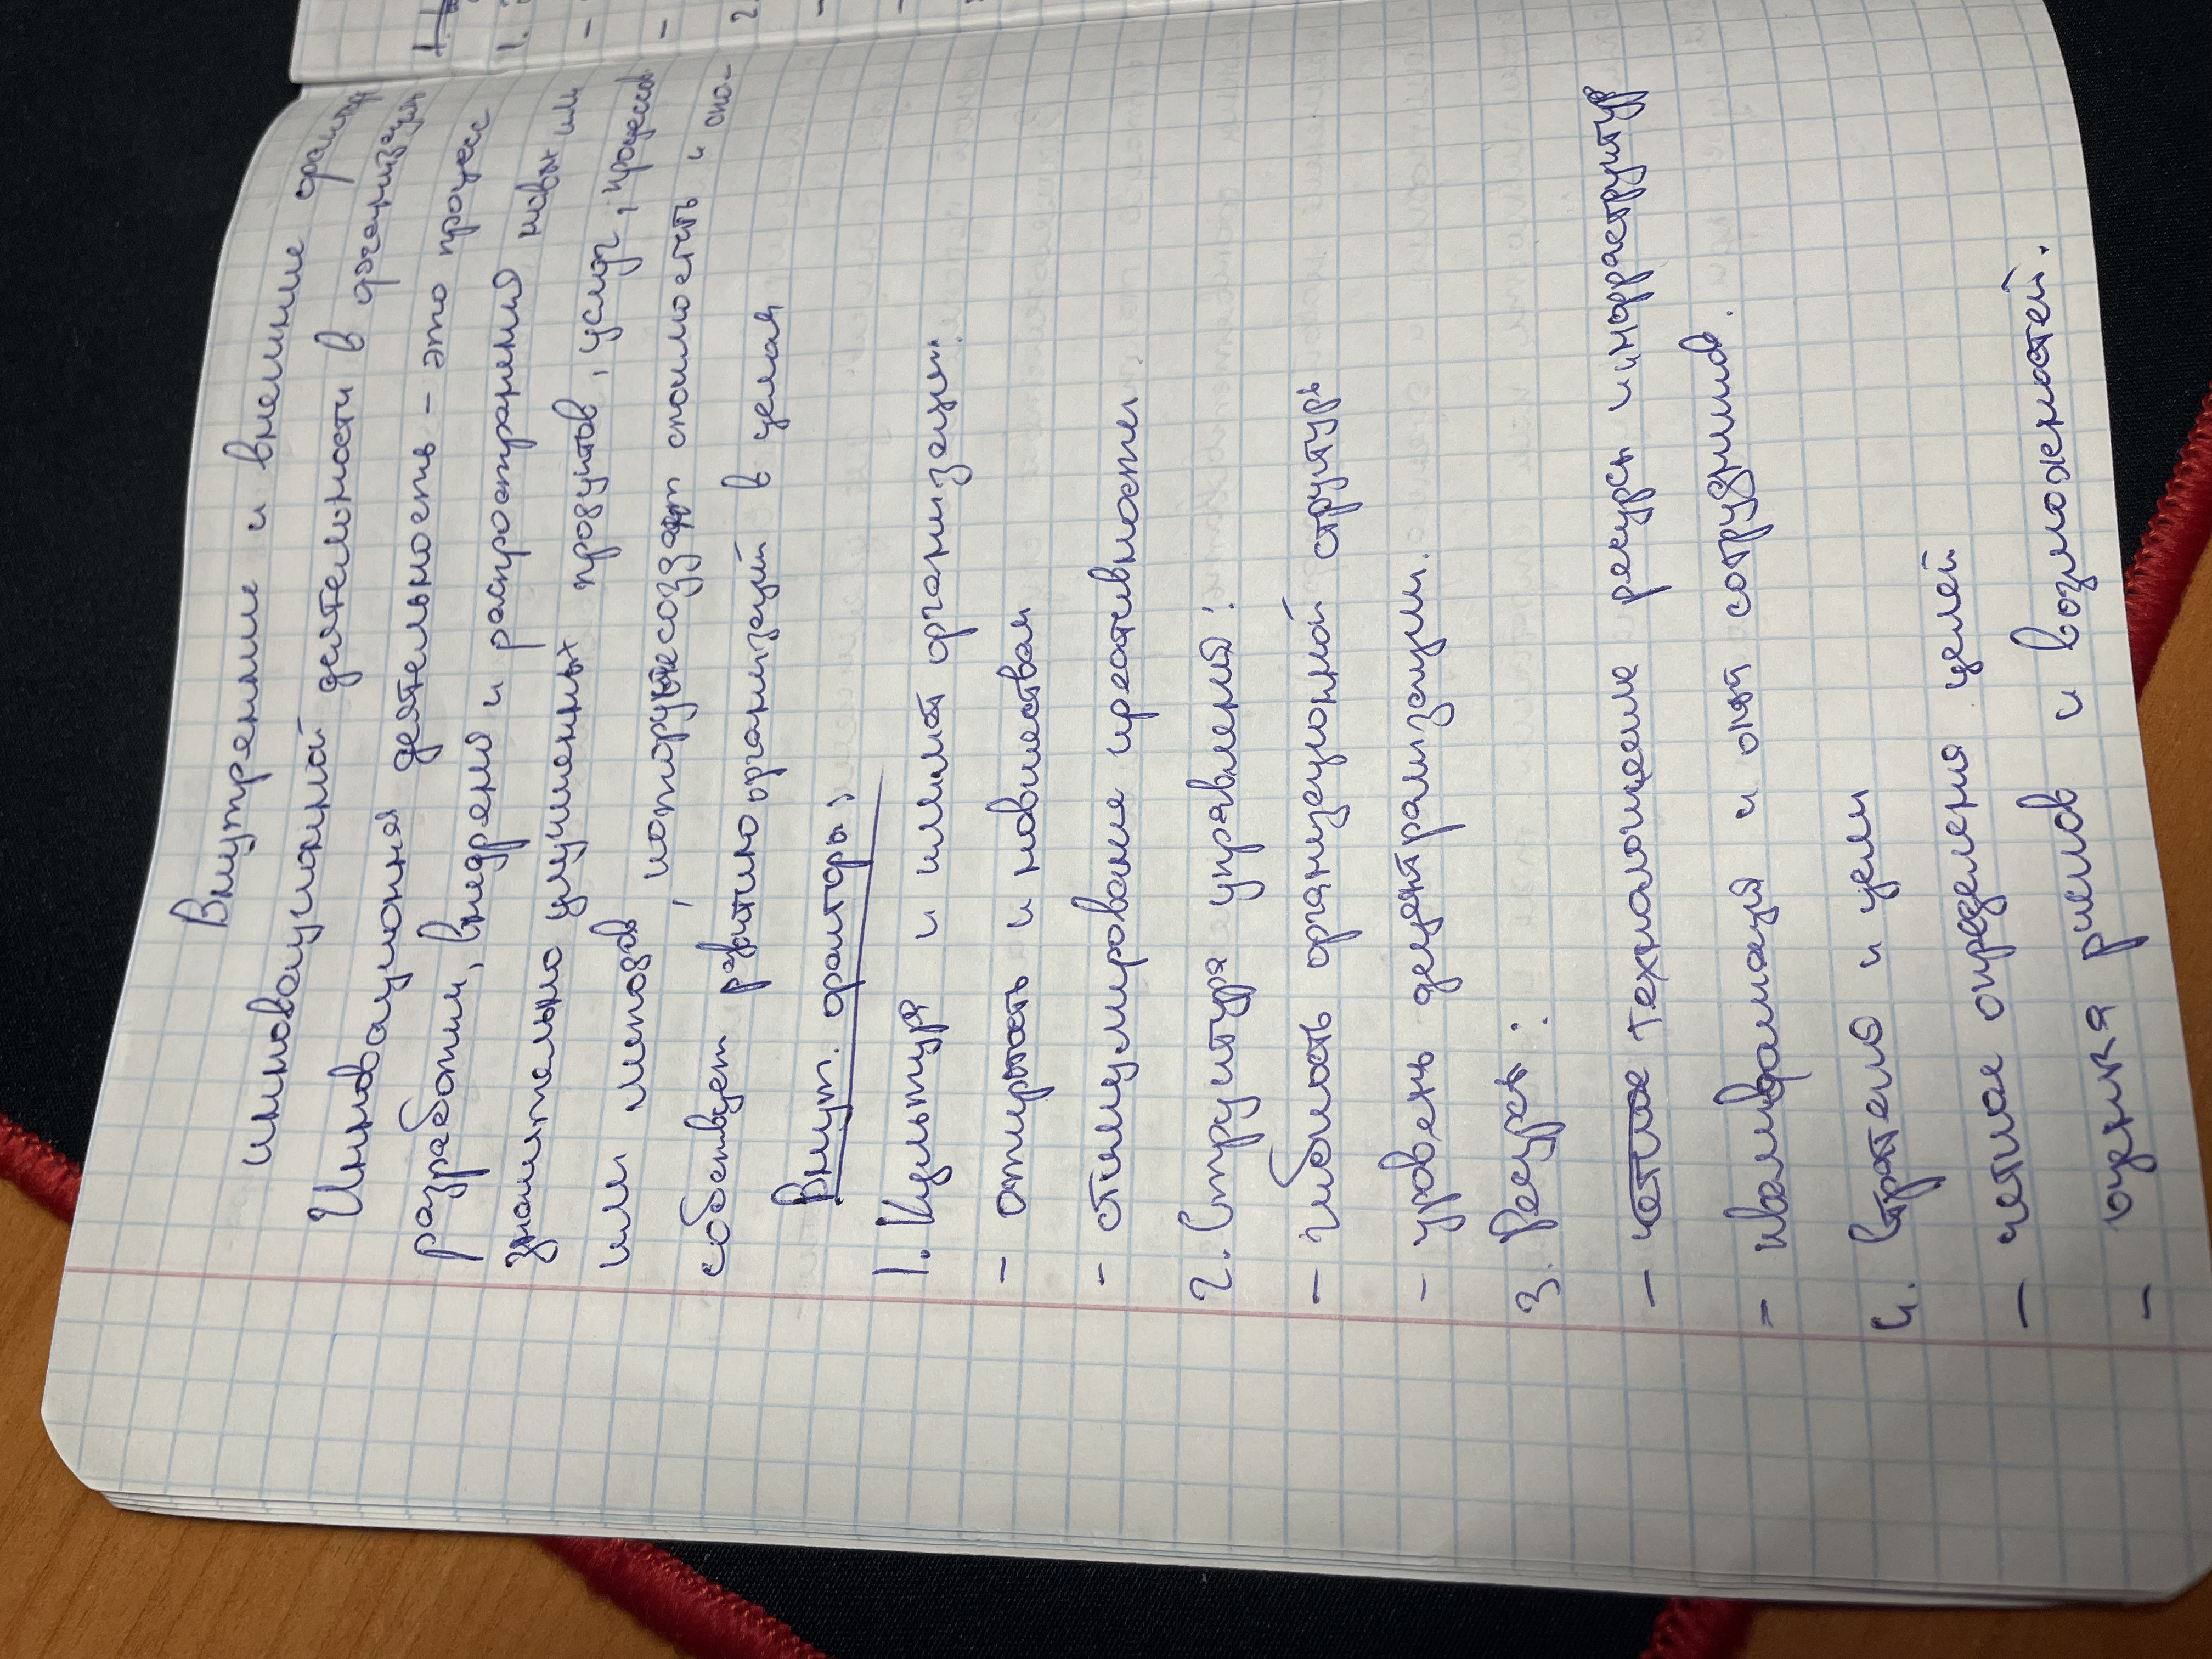 Внутренние и внешние фактор
инновационной деятельности в организации
Инновационная деятельность - это процесс
разработки, внедрения и распространения новых или
значительно улучшенных продуктов, услуг, процессов
или методов, которые создают стоимость и спо-
собствует развитию организаций в целом
Внут. факторы:
1. Культура и климат организации.
- открытость и новшествам
- стимулирование креативности
2. Структура управления:
- гибкость организационной структуры
- уровень децентрализации.
3. Ресурсы:
- технологические ресурсы и инфраструктур
- квалификация и опыт сотрудников.
4. Стратегия и цели
- четкое определения целей
- оценка рисков и возможностей.
1.
-
-
2.